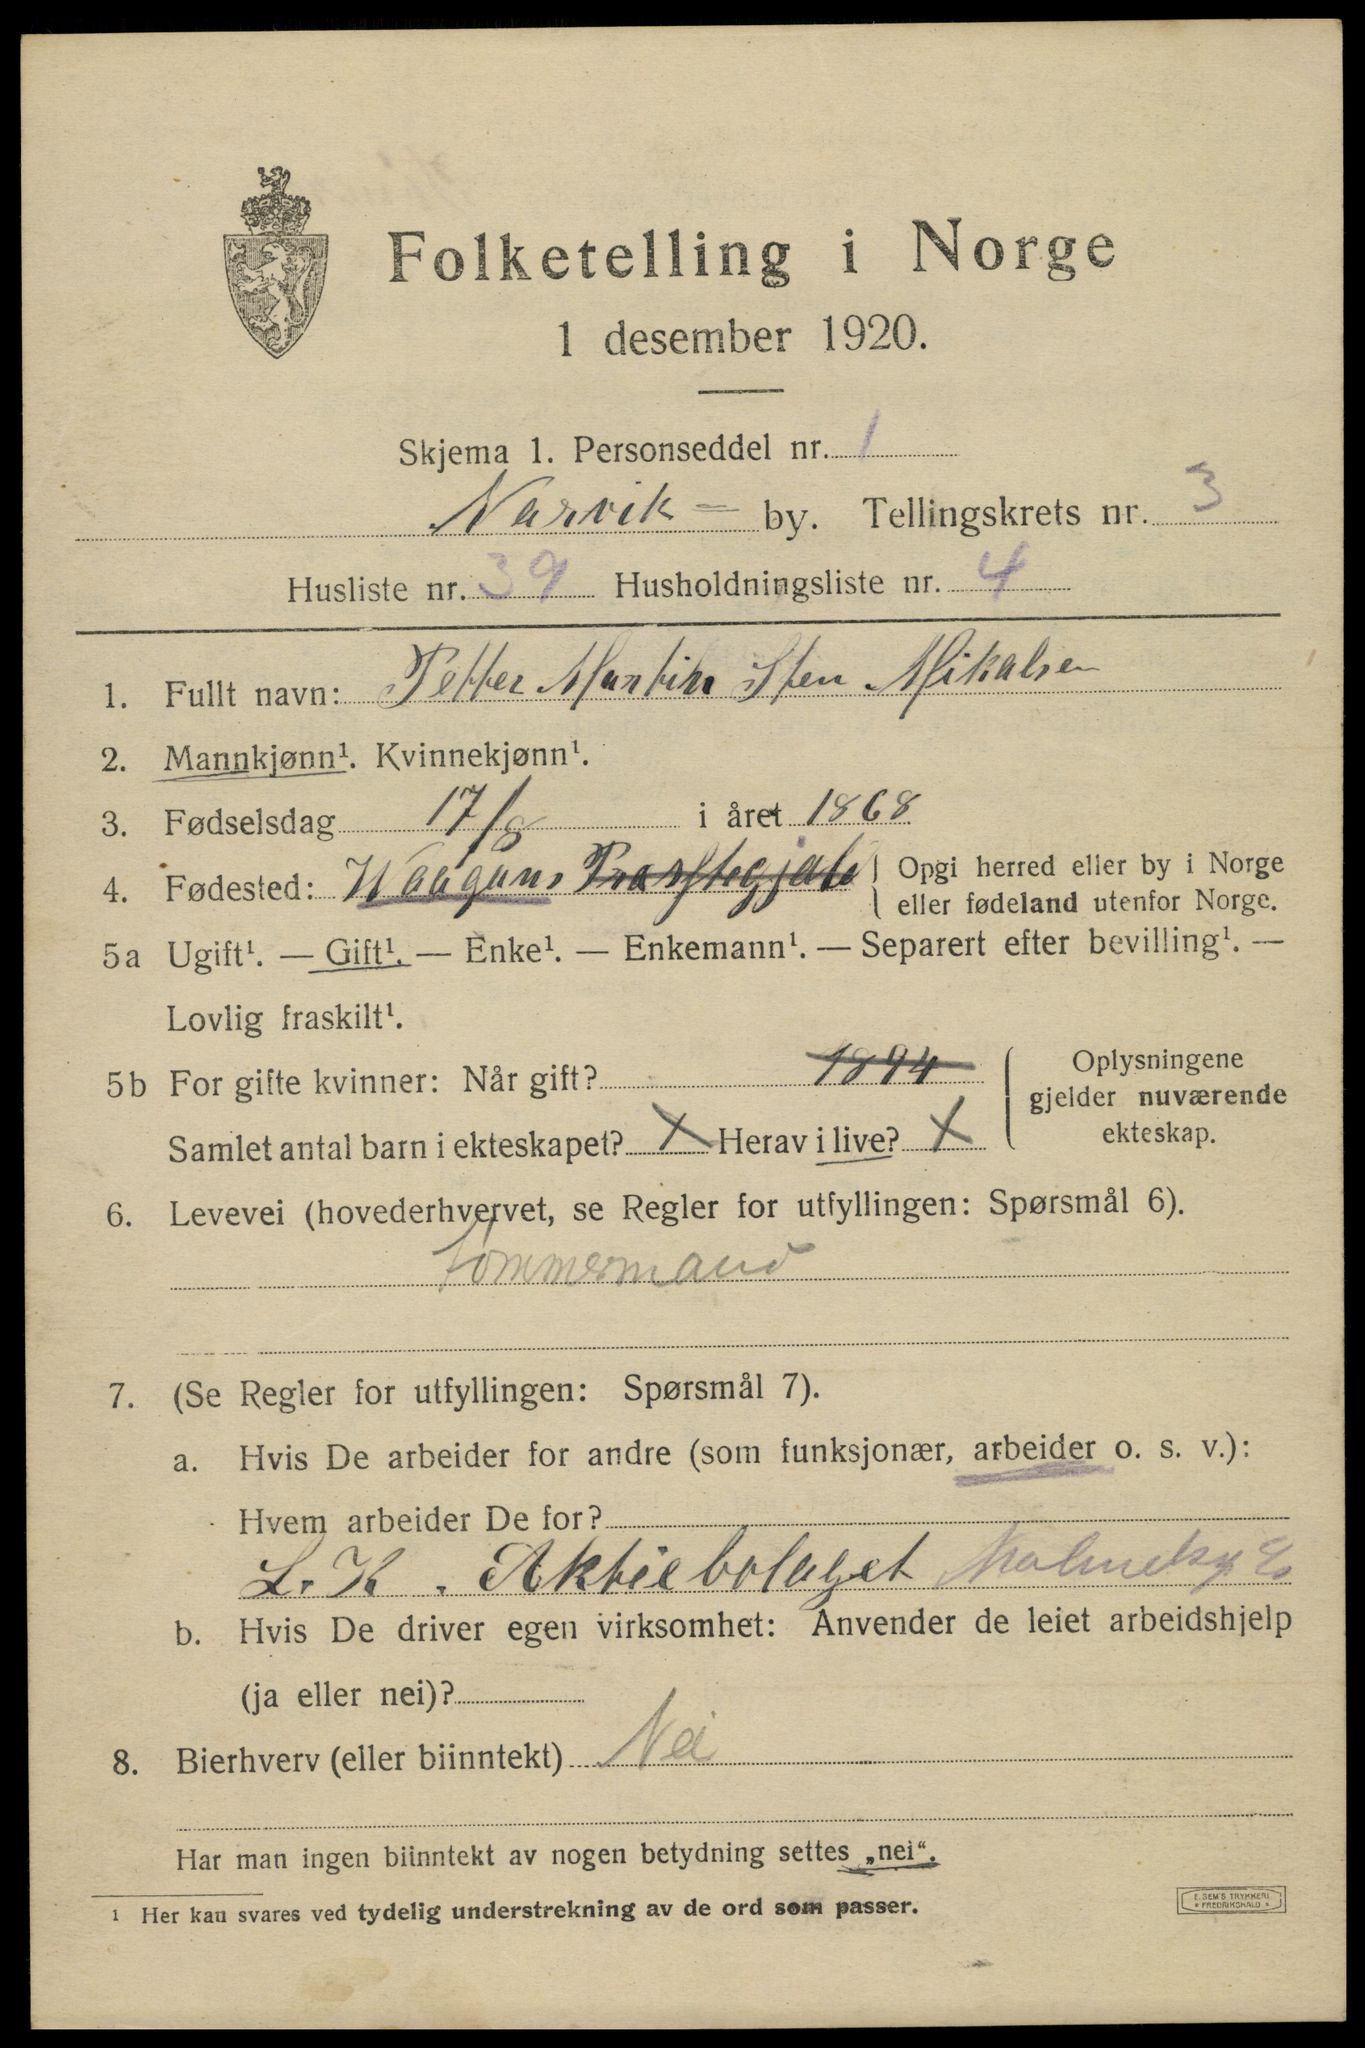 Folketelling i Norge
1 desember 1920.
Skjema 1. Personseddel nr. 1
Narvik by. Tellingskrets nr. 3
Husliste nr. 39 Husholdningsliste nr. 4
1. Fullt navn: Petter Martin Sten Mikalsen
2. Mannkjønn¹. Kvinnekjønn¹.
3. Fødselsdag 17/8 i året 1868
4. Fødested: Waagans Præstegjæld Opgi herred eller by i Norge
eller fødeland utenfor Norge.
5a Ugift¹. — Gift¹. — Enke¹. — Enkemann¹. — Separert efter bevilling¹. —
Lovlig fraskilt¹.
5b For gifte kvinner: Når gift? 1894 Oplysningene
gjelder nuværende
ekteskap.
Samlet antal barn i ekteskapet? X Herav i live? X
6. Levevei (hovederhvervet, se Regler for utfyllingen: Spørsmål 6).
Tømmermand
7. (Se Regler for utfyllingen: Spørsmål 7).
a. Hvis De arbeider for andre (som funksjonær, arbeider o. s. v.):
Hvem arbeider De for?
L. K. Aktiebolaget
b. Hvis De driver egen virksomhet: Anvender de leiet arbeidshjelp
(ja eller nei)?
8. Bierhverv (eller biinntekt) Nei
Har man ingen biinntekt av nogen betydning settes „nei“.
¹ Her kan svares ved tydelig understrekning av de ord som passer.
E. SEM'S TRYKKERI
* FREDRIKSHALD *